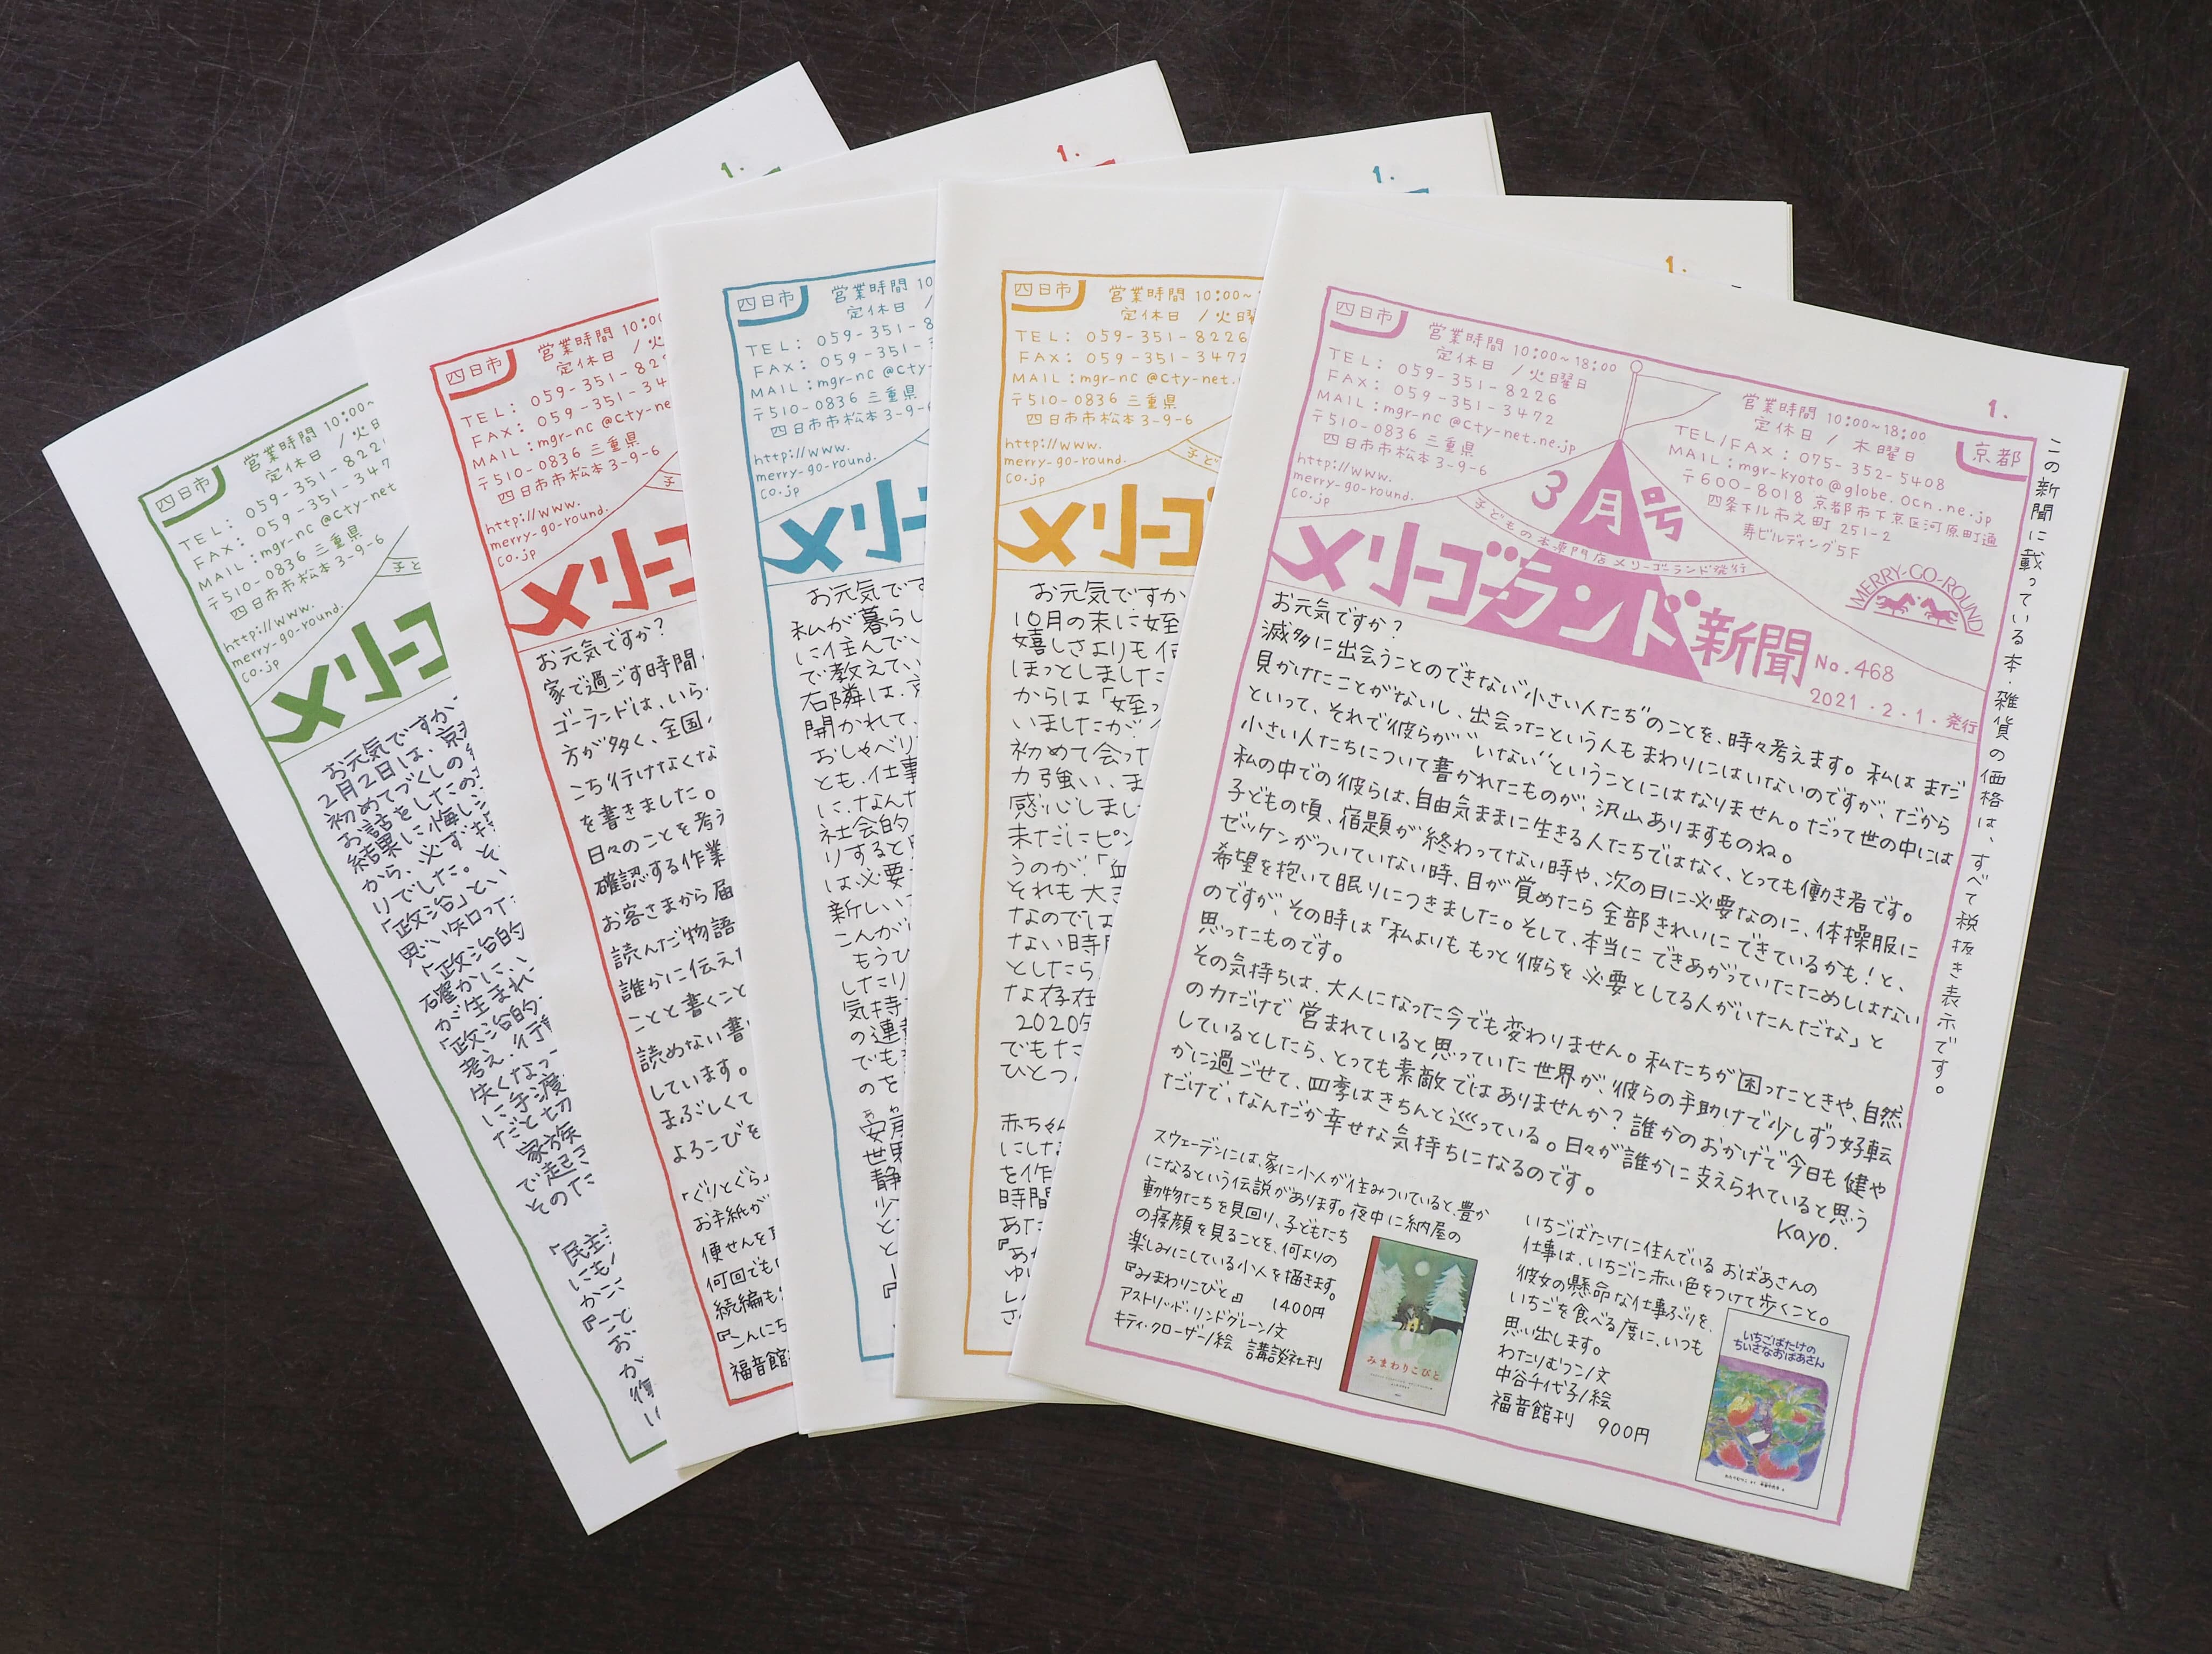 1.
四日市
営業時間 10:00~
定休日 /火日
TEL: 059-351-822
FAX: 059-351-347
MAIL:mgr-nc @cty-net
〒510-0836 三重県
四日市市松本3-9-6
http://www.
merry-go-round.
co.jp
子ど
メリーゴ
お元気ですか
2月2日は、京
初めてづくしの
お話をしたの
結果に悔し
から、必ず
りでした。そ
「政治」とい
思い知って
「政治的
確かに、
が生まれ
「政治的
考え、行
失くなっ
に手渡
だと切
家族
で起こ
そのた
「民主
にも
かこ
『こと
お
が
1.
四日市
営業時間 10:00
定休日 /火
TEL: 059-351-82
FAX: 059-351-34
MAIL:mgr-nc @cty-ne
〒510-0836 三重県
四日市市松本3-9-6
http://www.
merry-go-round.
co.jp
子
メリーゴ
お元気ですか?
家で過ごす時間
ゴーランドは、いら
方が多く、全国
こち行けなくな
を書きました。
日々のことを考え
確認する作業
お客さまから届
読んだ物語
誰かに伝えた
ことと書くこと
読めない書
しています。
まぶしくて
よろこびを
『ぐりとぐら』
お手紙が
便せんを
何回でも
続編も
『こんにち
福音館
1.
四日市
営業時間 10
定休日 /
TEL: 059-351-8
FAX: 059-351-3
MAIL:mgr-nc @cty-
〒510-0836 三重県
四日市市松本3-9-6
http://www.
merry-go-round.
co.jp
メリー
お元気です
私が暮らし
に住んでい
で教えてい
右隣は、京
開かれて、
おしゃべり
とも、仕事
に、なんた
社会的
りすると
は必要
新しい
こんが
もうひ
したり
気持
の連
でも
のを
世界
静
少
と
と
1.
四日市
営業時間 10:00~
定休日 /火曜
TEL: 059-351-8226
FAX: 059-351-3472
MAIL:mgr-nc @cty-net.
〒510-0836 三重県
四日市市松本3-9-6
http://www.
merry-go-round.
co.jp
子ど
メリーゴ
お元気ですか
10月の末に姪
嬉しさよりも何
ほっとしました
からは「姪っ
いましたが、
初めて会った
力強い、ま
感心しまし
未だにピン
うのが、「血
それも大き
なのでは
ない時間
としたら
な存在
2020年
でもた
ひとつ
赤ちゃん
にした
を作
時間
あた
『あか
ゆ
し
さ
1.
四日市
営業時間 10:00~18:00
定休日 /火曜日
TEL: 059-351-8226
FAX: 059-351-3472
MAIL:mgr-nc @cty-net.ne.jp
〒510-0836 三重県
四日市市松本3-9-6
http://www.
merry-go-round.
co.jp
京都
営業時間 10:00~18:00
定休日 / 木曜日
TEL/FAX: 075-352-5408
MAIL:mgr-kyoto@globe.ocn.ne.jp
〒600-8018 京都市下京区河原町通
四条下ル市之町 251-2
寿ビルディング5F
3月号
子どもの本専門店メリーゴーランド発行
MERRY-GO-ROUND
メリーゴーランド新聞 No.468
2021.2.1.発行
お元気ですか?
滅多に出会うことのできない“小さい人たち”のことを、時々考えます。私はまだ
見かけたことがないし、出会ったという人もまわりにはいないのですが、だから
といって、それで彼らが“いない”ということにはなりません。だって世の中には
小さい人たちについて書かれたものが、沢山ありますものね。
私の中での彼らは、自由気ままに生きる人たちではなく、とっても働き者です。
子どもの頃、宿題が終わってない時や、次の日に必要なのに、体操服に
ゼッケンがついていない時、目が覚めたら全部きれいにできているかも!と、
希望を抱いて眠りにつきました。そして、本当にできあがっていたためしはない
のですが、その時は「私よりももっと彼らを必要としてる人がいたんだな」と
思ったものです。
その気持ちは、大人になった今でも変わりません。私たちが困ったときや、自然
の力だけで営まれていると思っていた世界が、彼らの手助けで少しずつ好転
しているとしたら、とっても素敵ではありませんか?誰かのおかげで今日も健や
かに過ごせて、四季はきちんと巡っている。日々が誰かに支えられていると思う
だけで、なんだか幸せな気持ちになるのです。
Kayo.
スウェーデンには、家に小人が住みついていると、豊か
になるという伝説があります。夜中に納屋の
動物たちを見回り、子どもたち
の寝顔を見ることを、何よりの
楽しみにしている小人を描きます。
『みまわりこびと』 1400円
アストリッド・リンドグレーン/文
キティ・クローザー/絵 講談社刊
みまわりこびと
いちごばたけに住んでいるおばあさんの
仕事は、いちごに赤い色をつけて歩くこと。
彼女の懸命な仕事ぶりを、
いちごを食べる度に、いつも
思い出します。
わたりむつこ/文
中谷千代子/絵
福音館刊 900円
いちごばたけの
ちいさなおばあさん
この新聞に載っている本・雑貨の価格は、すべて税抜き表示です。